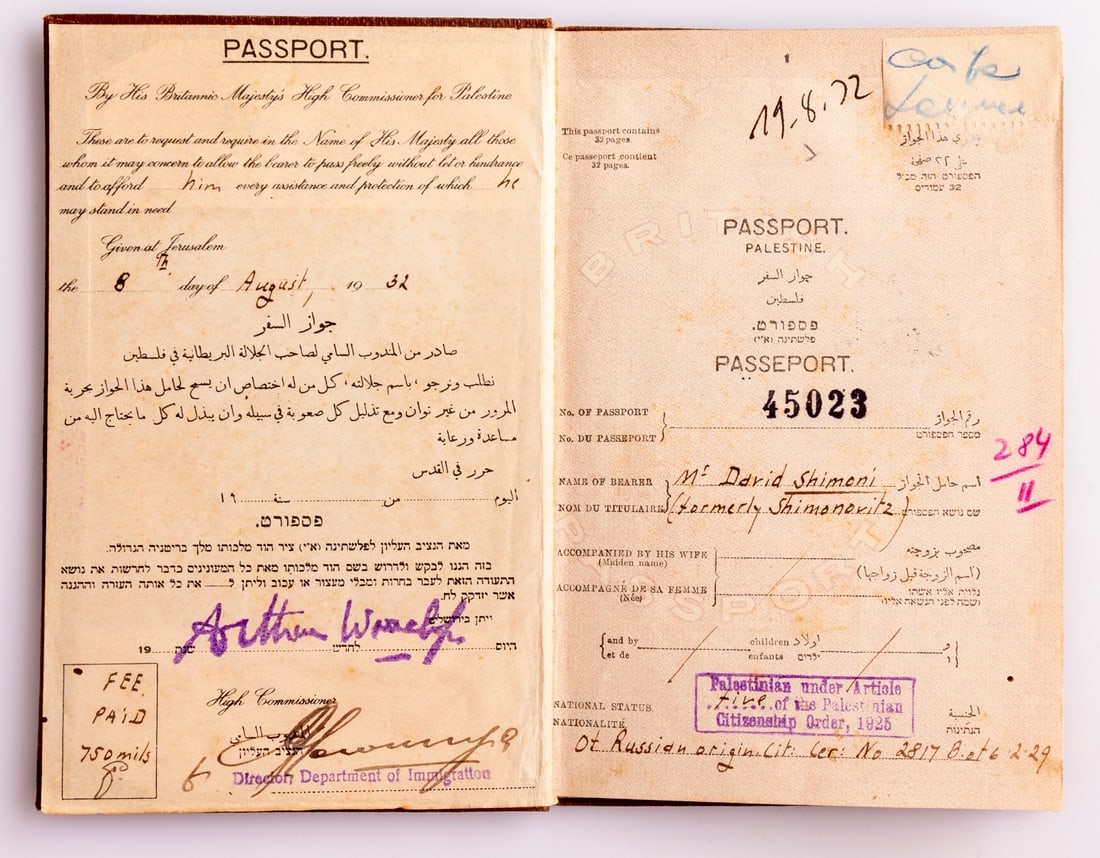 PASSPORT.
By His Britannic Majesty's High Commissioner for Palestine
These are to request and require in the Name of His Majesty all those
whom it may concern to allow the bearer to pass freely without let or hindrance
and to afford him every assistance and protection of which he
may stand in need
Given at Jerusalem
the 8th day of August, 1932
جواز السفر
صادر من المندوب السامي لصاحب الجلالة البريطانية في فلسطين
نطلب ونرجو، باسم جلالته، كل من له اختصاص ان يسمح لحامل هذا الجواز بحرية
المرور من غير توان ومع تذليل كل صعوبة في سبيله وان يبذل له كل ما يحتاج اليه من
مساعدة ورعاية
حرر في القدس
اليوم من سنة ١٩
פספורט.
מאת הנציב העליון לפלשתינה (א״י) ציר הוד מלכותו מלך בריטניה הגדולה.
בזה הננו לבקש ולדרוש בשם הוד מלכותו מאת כל המעונינים בדבר להרשות את נושא
התעודה הזאת לעבר בחרות ומבלי מעצור או עכוב וליתן ל את כל אותה העזרה וההגנה
אשר יזדקק לה.
ניתן בירושלים
היום לחדש שנת 19
High Commissioner
المندوب السامي
הנציב העליון
Director, Department of Immigration
FEE
PAID
750 mils
19-8-32
This passport contains
32 pages.
Ce passeport contient
32 pages.
يحتوي هذا الجواز
على ٣٢ صفحة
הפספורט הזה מכיל
32 עמודים
BRITISH
PASSPORT
PASSPORT.
PALESTINE.
جواز السفر
فلسطين
פספורט.
פלשתינה (א״י)
PASSEPORT.
45023
No. OF PASSPORT رقم الجواز
No. DU PASSEPORT מספר הפספורט
284
11
NAME OF BEARER Mr David Shimoni اسم حامل الجواز
NOM DU TITULAIRE (formerly Shimonovitz) שם נושא הפספורט
ACCOMPANIED BY HIS WIFE مصحوب بزوجته
(Maiden name) (اسم الزوجة قبل زواجها)
ACCOMPAGNÉ DE SA FEMME נלוית אליו אשתו
(Née) (ושמה לפני הנשאה אליו)
and by children اولاد و
et de enfants ילדים ו
Palestinian under Article
five of the Palestinian
Citizenship Order, 1925
NATIONAL STATUS. الجنسية
NATIONALITÉ. הנתינות
Of Russian origin. Cit: Cer: No 2817 B. of 6-2-29